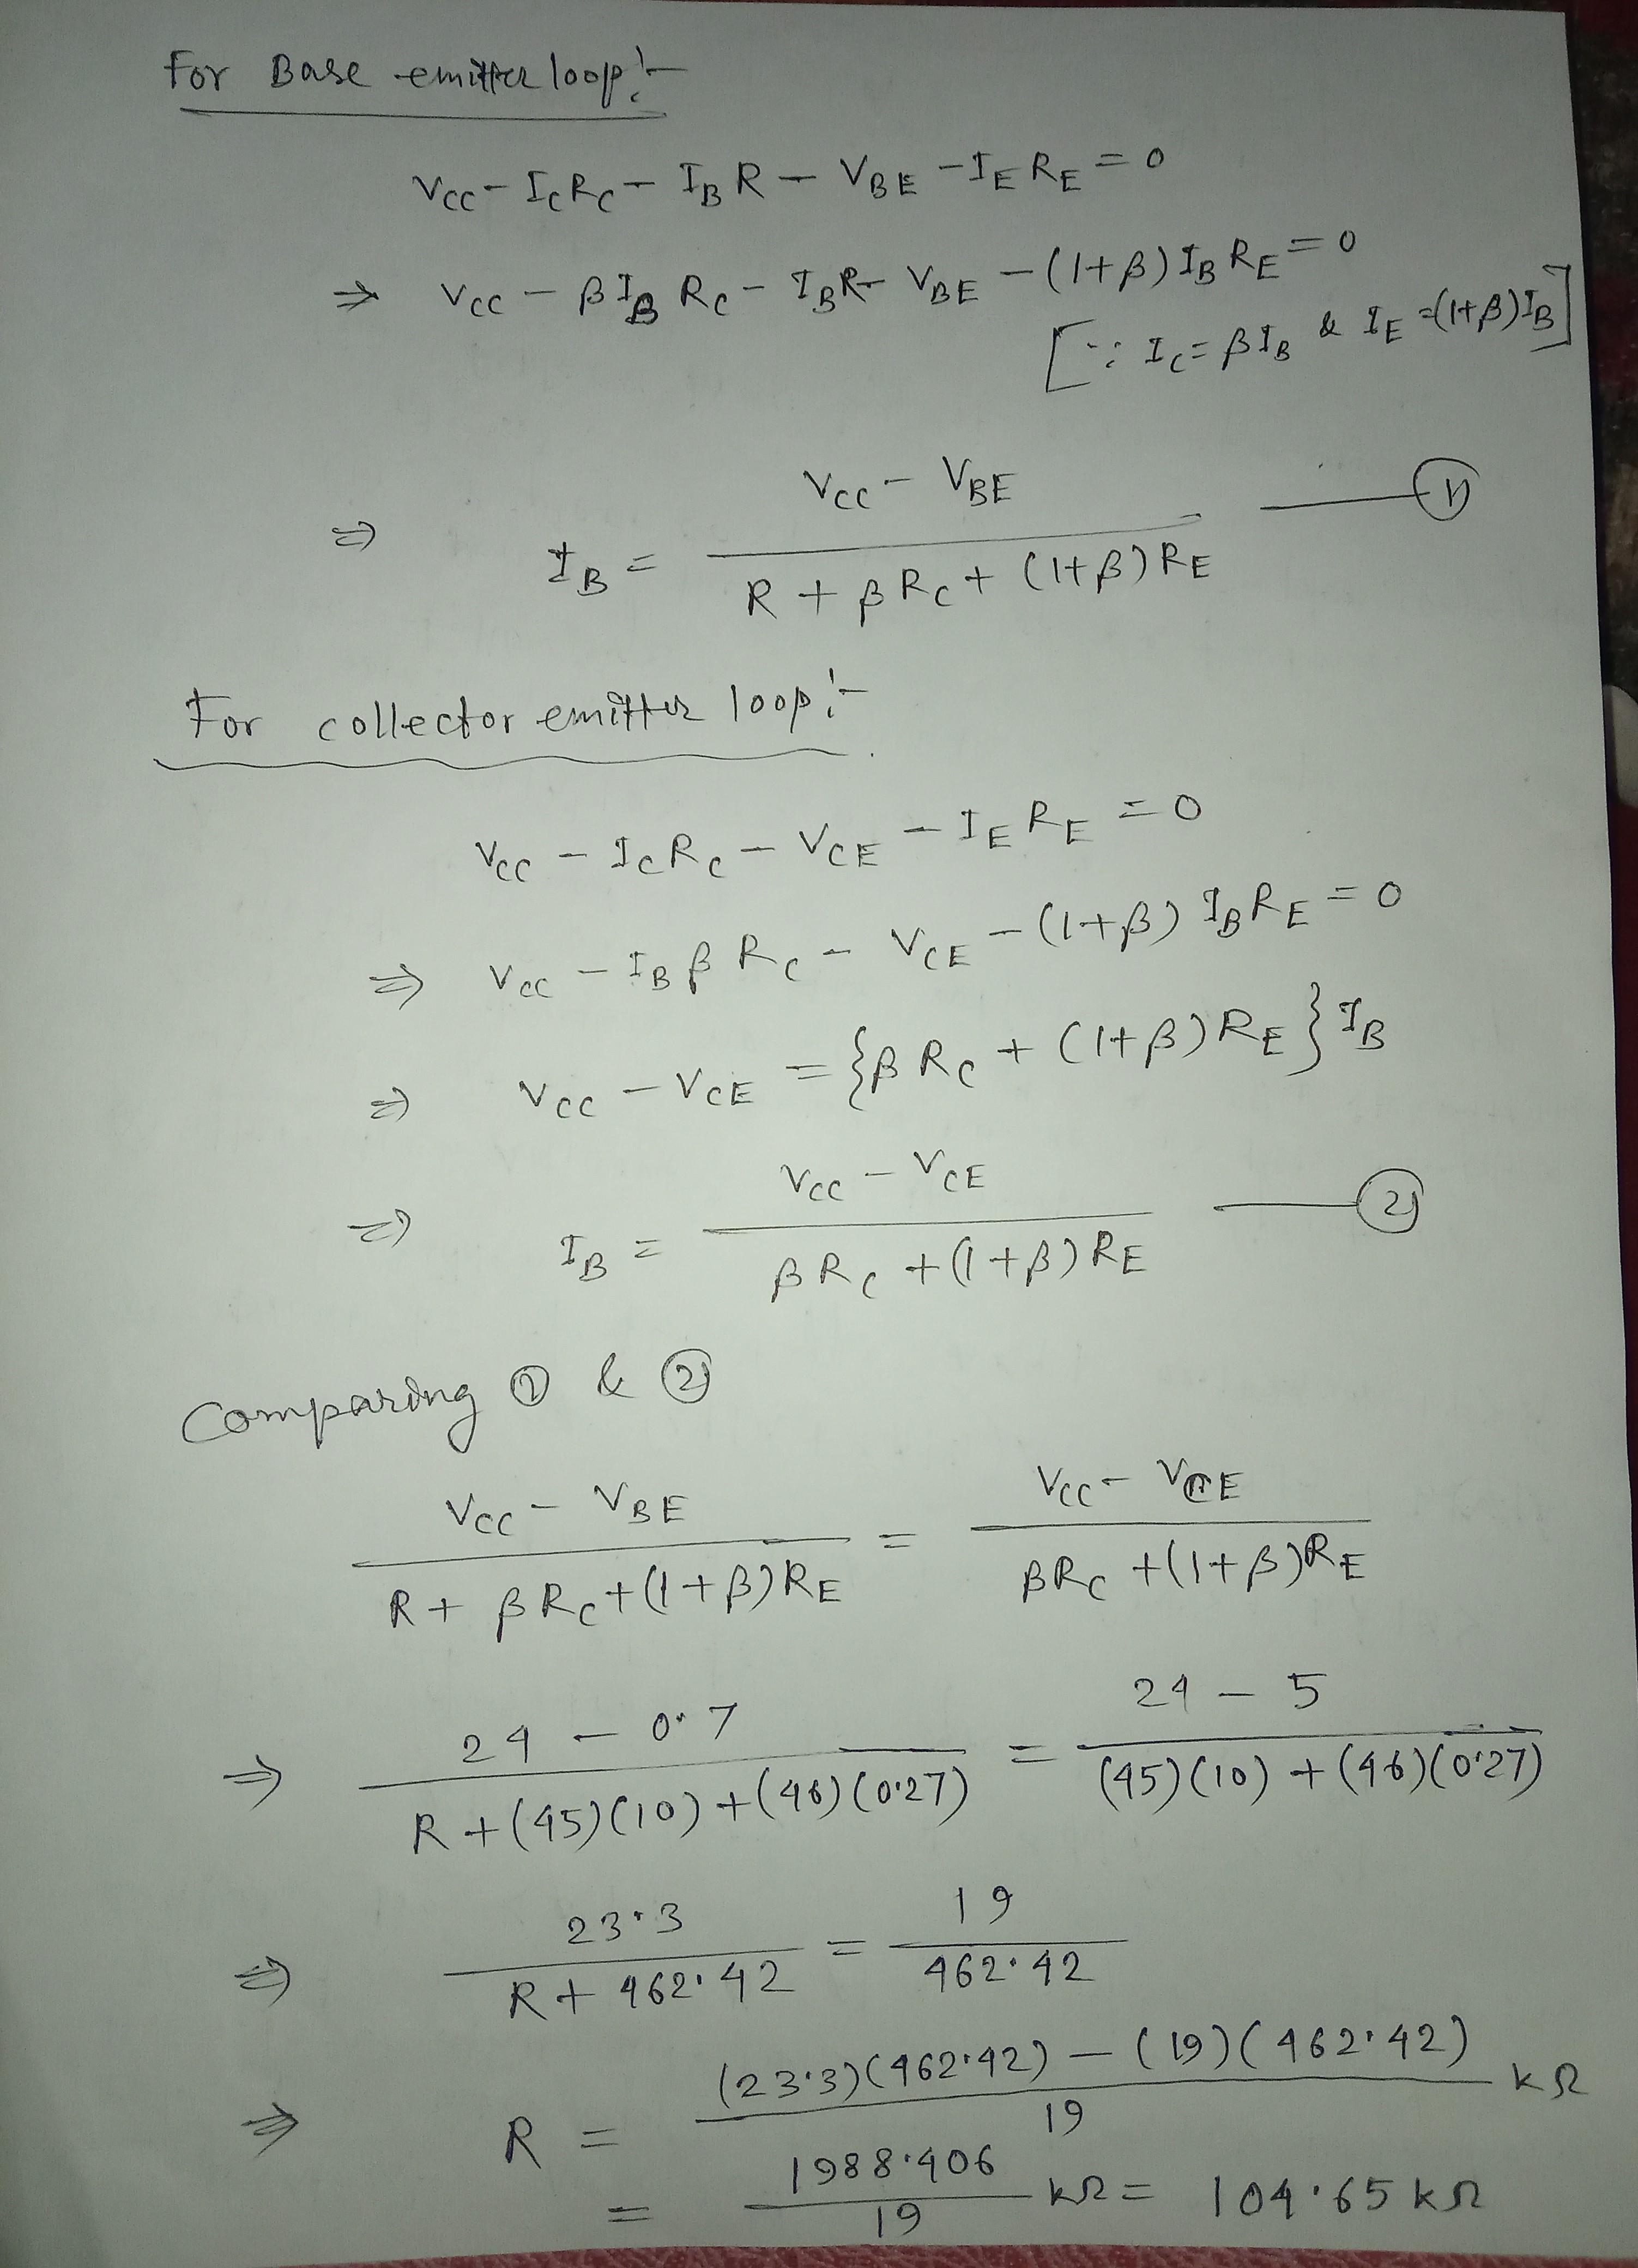 For Base emitter loop:-
VCC - IC RC - IB R - VBE - IE RE = 0
⇒ VCC - β IB RC - IB R - VBE - (1+β) IB RE = 0
[∵ IC = β IB & IE = (1+β) IB]
⇒ IB = (VCC - VBE) / (R + β RC + (1+β) RE) —— (1)
For collector emitter loop:-
VCC - IC RC - VCE - IE RE = 0
⇒ VCC - IB β RC - VCE - (1+β) IB RE = 0
⇒ VCC - VCE = {β RC + (1+β) RE} IB
⇒ IB = (VCC - VCE) / (β RC + (1+β) RE) —— (2)
Comparing (1) & (2)
(VCC - VBE) / (R + β RC + (1+β) RE) = (VCC - VCE) / (β RC + (1+β) RE)
⇒ (24 - 0.7) / (R + (45)(10) + (46)(0.27)) = (24 - 5) / ((45)(10) + (46)(0.27))
⇒ 23.3 / (R + 462.42) = 19 / 462.42
⇒ R = ((23.3)(462.42) - (19)(462.42)) / 19 kΩ
= 1988.406 / 19 kΩ = 104.65 kΩ